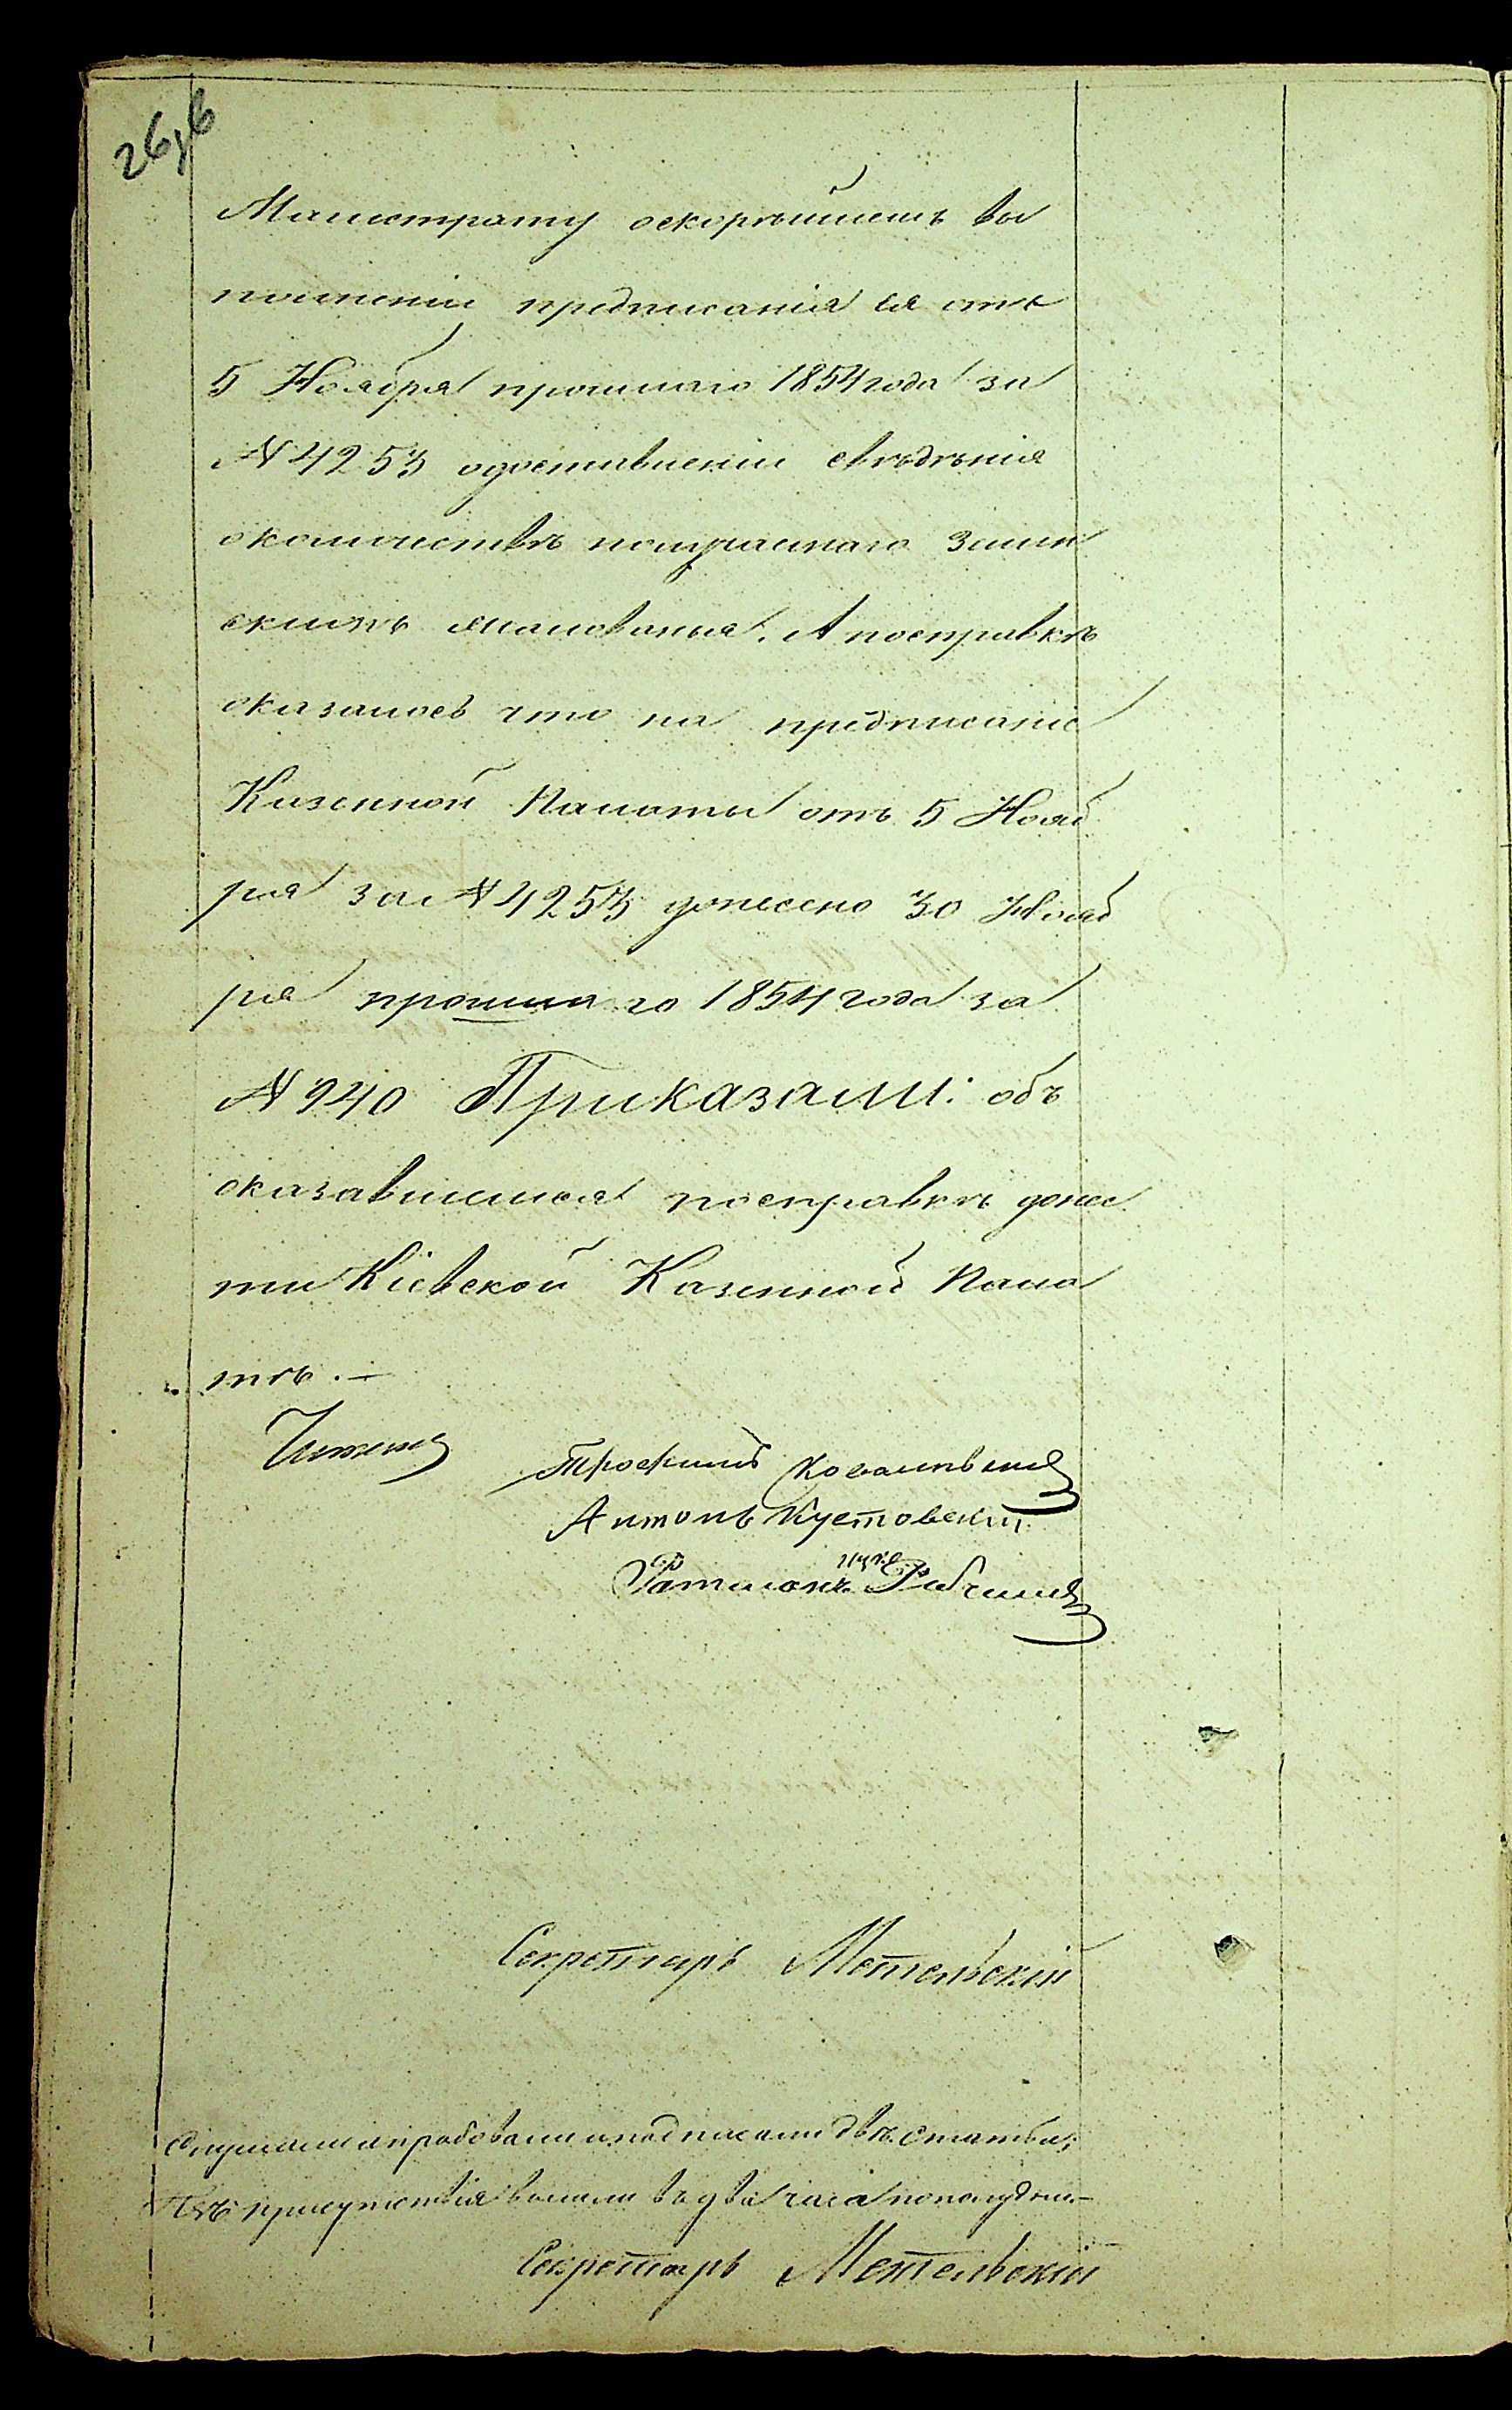 Магистрату оскорѣйшемъ вы
полненіи предписанія ея отъ
5 Ноября прошлаго 1854 года за
№ 4253 одоставленіи свѣдѣнія
околичествѣ получаемаго Залев
скимъ жалованья. А посправкѣ
оказалось что на предписаніе
Казенной Палаты отъ 5 Нояб
ря за № 4253 донесено 30 Нояб
ря прошлаго 1854 года за
№ 940 Приказали: объ
оказавшимся посправкѣ донес
ти Кіевской Казенной Пала
тѣ. —
Трофимъ Ковалевскій
Антонъ Кустовскій
Секретарь Метельскій
Слушали и подписали двѣ статьи;
Изъ присутствія вышли въ два часа пополудни.—
Секретарь Метельскій